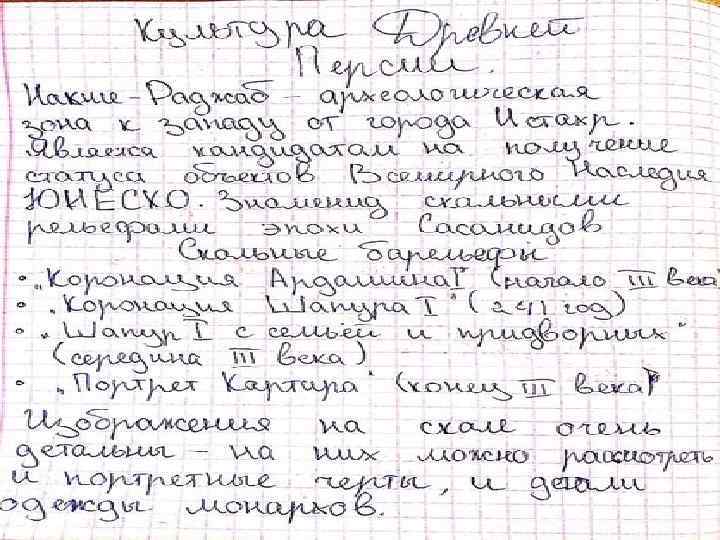 Культура Древней
Персии.
Накше-Раджаб - археологическая
зона к западу от города Истахр.
Является кандидатам на получение
статуса объектов Всемирного Наследия
ЮНЕСКО. Знаменид скальными
рельефами эпохи Сасанидов
Скальные барельефы
• „Коронация Ардашина I" (начало III века)
• „Коронация Шапура I" (241 год)
• „Шапур I с семьёй и придворных"
(середина III века)
• „Портрет Картира" (конец III века)
Изображения на скале очень
детальны - на них можно рассмотреть
и портретные черты, и детали
одежды монархов.